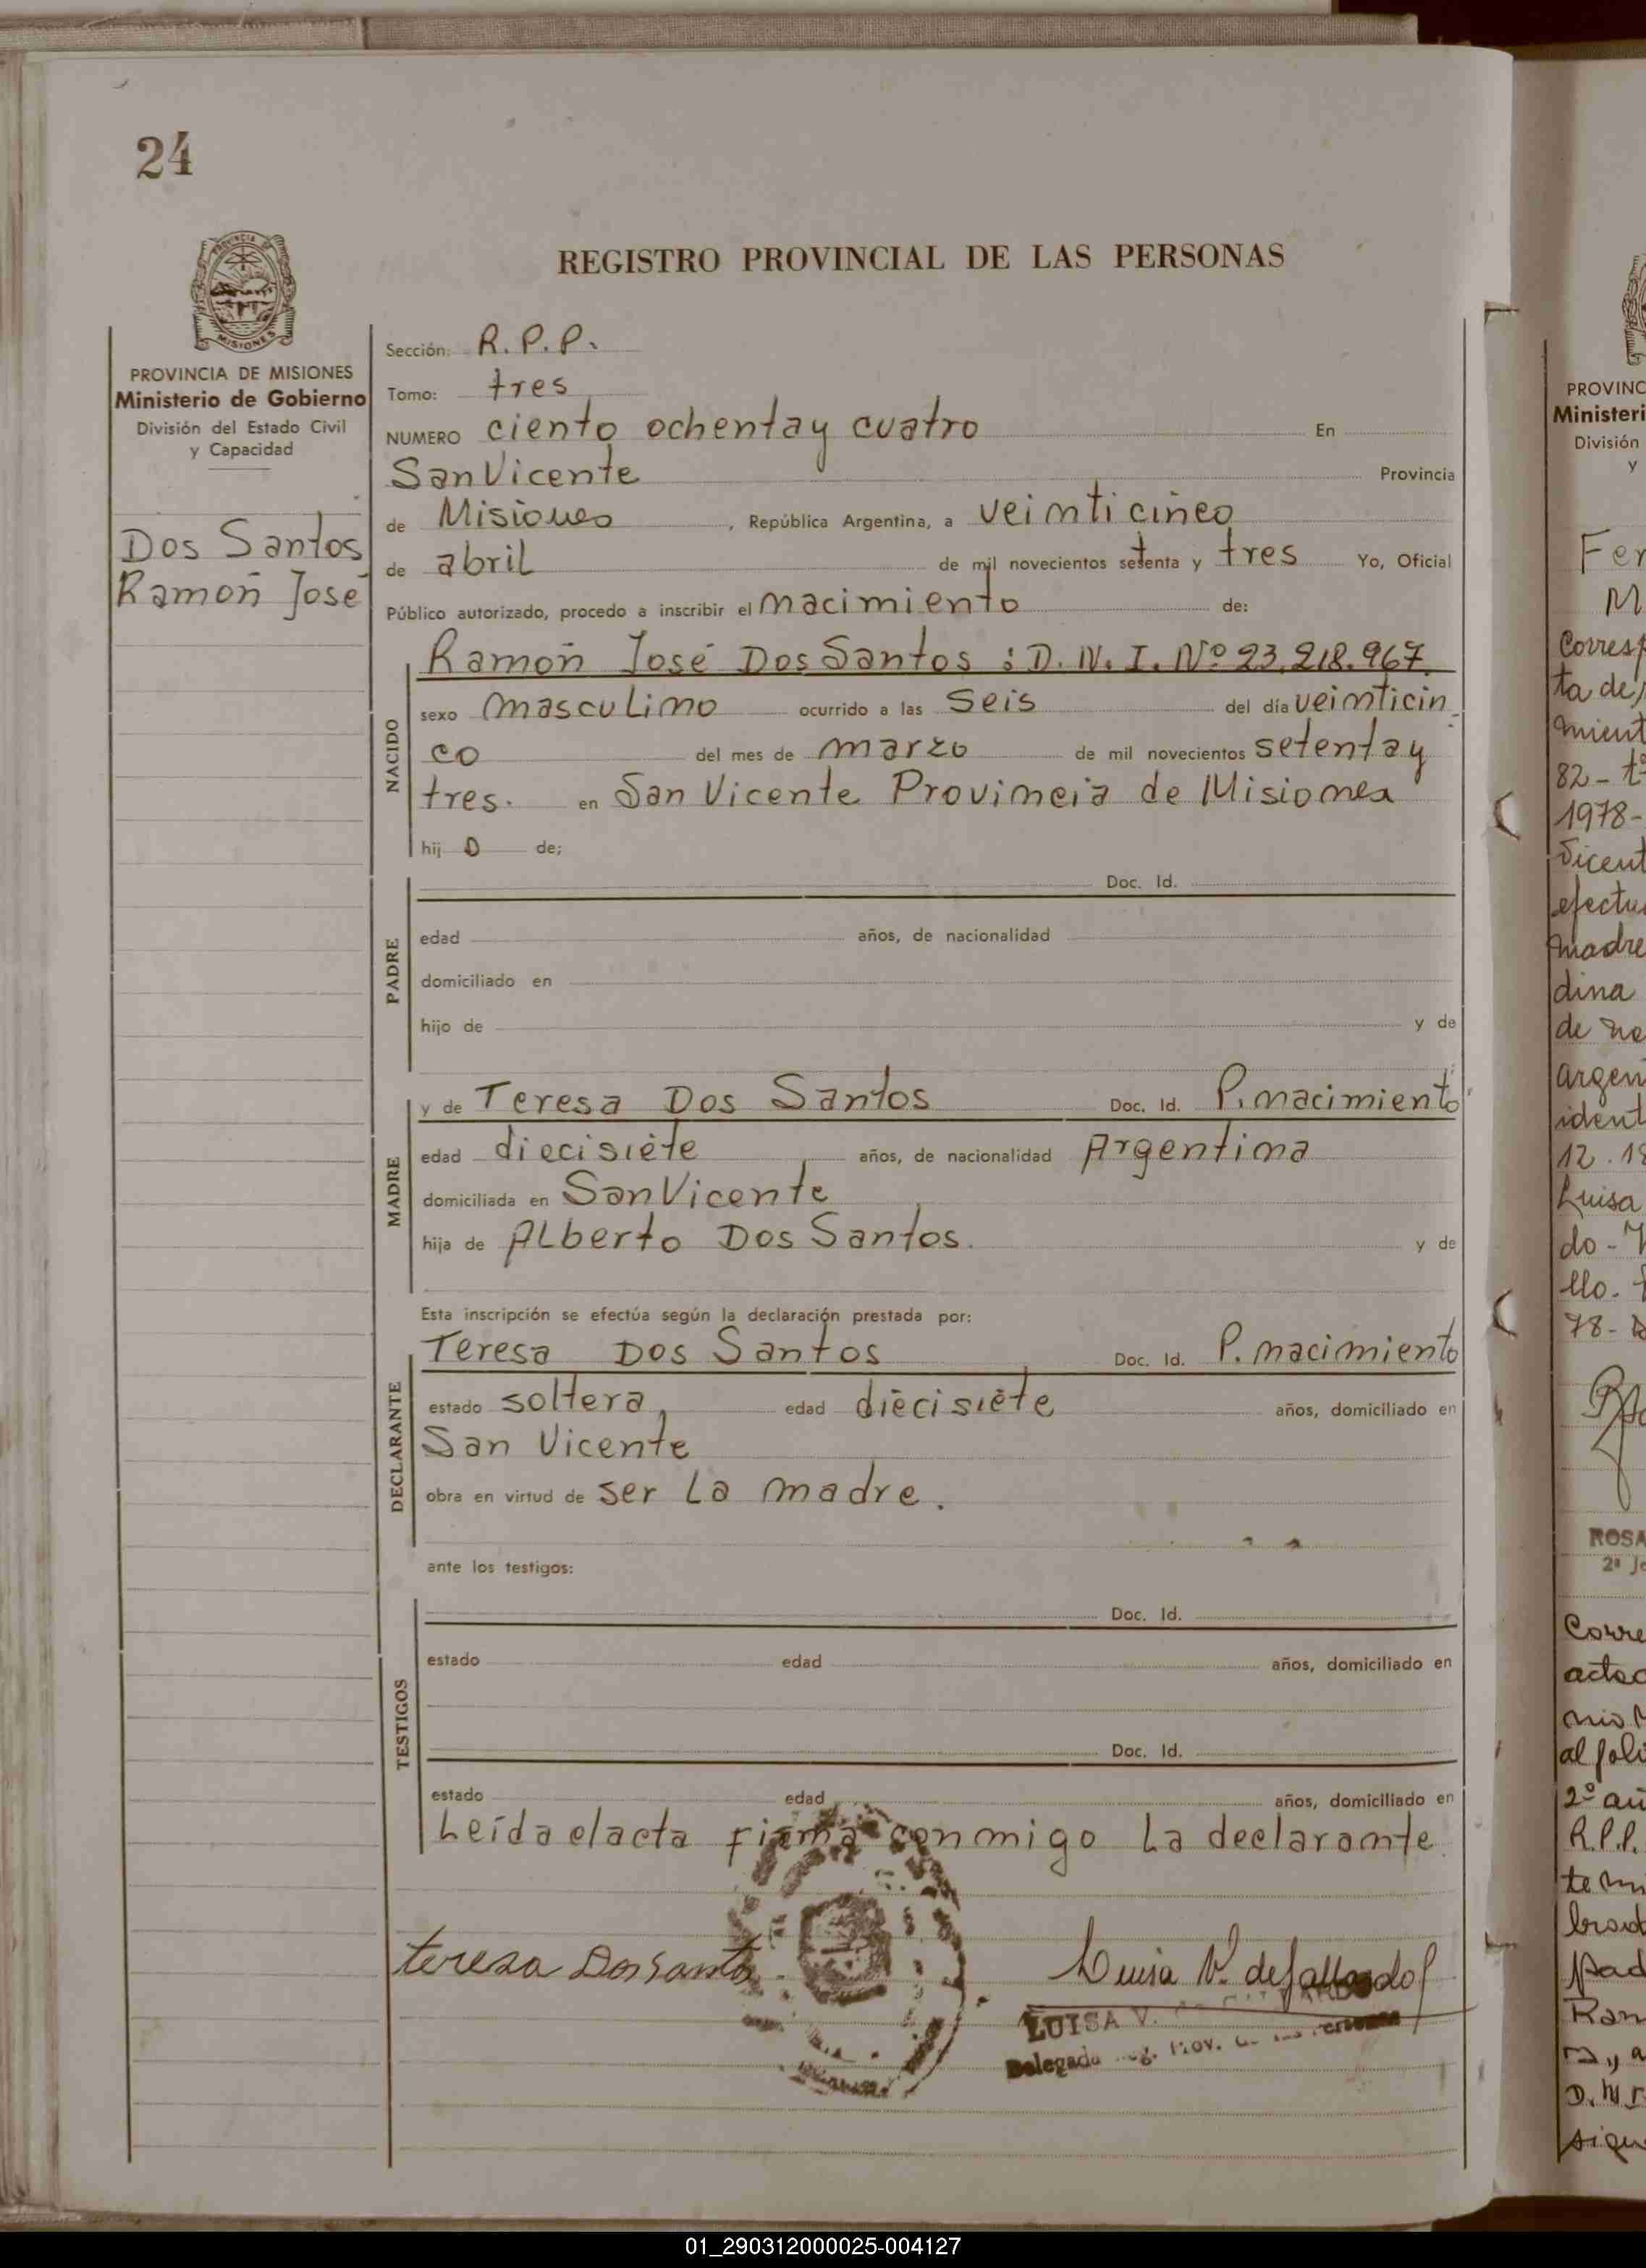 24
PROVINCIA DE
MISIONES
REGISTRO PROVINCIAL DE LAS PERSONAS
PROVINCIA DE MISIONES
Ministerio de Gobierno
División del Estado Civil
y Capacidad
Dos Santos
Ramoñ José
Sección: R.P.P.
Tomo: tres
NUMERO ciento ochenta y cuatro En
San Vicente Provincia
de Misiones, República Argentina, a veinticinco
de abril de mil novecientos setenta y tres Yo, Oficial
Público autorizado, procedo a inscribir el nacimiento de:
NACIDO
Ramoñ José Dos Santos : D.N.I. Nº 23.218.967
sexo masculino ocurrido a las Seis del día veinticin
co del mes de marzo de mil novecientos setenta y
tres. en San Vicente Provincia de Misiones
hij o de;
PADRE
Doc. Id.
edad años, de nacionalidad
domiciliado en
hijo de y de
MADRE
y de Teresa Dos Santos Doc. Id. P. nacimiento
edad diecisiéte años, de nacionalidad Argentina
domiciliada en San Vicente
hija de ALberto Dos Santos. y de
Esta inscripción se efectúa según la declaración prestada por:
DECLARANTE
Teresa Dos Santos Doc. Id. P. nacimiento
estado soltera, edad diecisiéte años, domiciliado en
San Vicente
obra en virtud de ser La madre.
ante los testigos:
TESTIGOS
Doc. Id.
estado edad años, domiciliado en
Doc. Id.
estado edad años, domiciliado en
Leída el acta firma conmigo La declarante.
teresa Dos santos
Luisa V. de Gallardo
LUISA V.
Delegada
PROVINC
Ministeri
División
y
Fer
M
Corresp
ta de
mient
82 - tº
1978-
Vicent
efectu
madre
dina
de na
argen
ident
12.18
Luisa
do -
llo.
78-
ROSA
2ª Je
Corre
acta
nio
al foli
2º añ
R.P.P.
te
brad
pad
Ram
D.N.I.
sigu
01_290312000025-004127